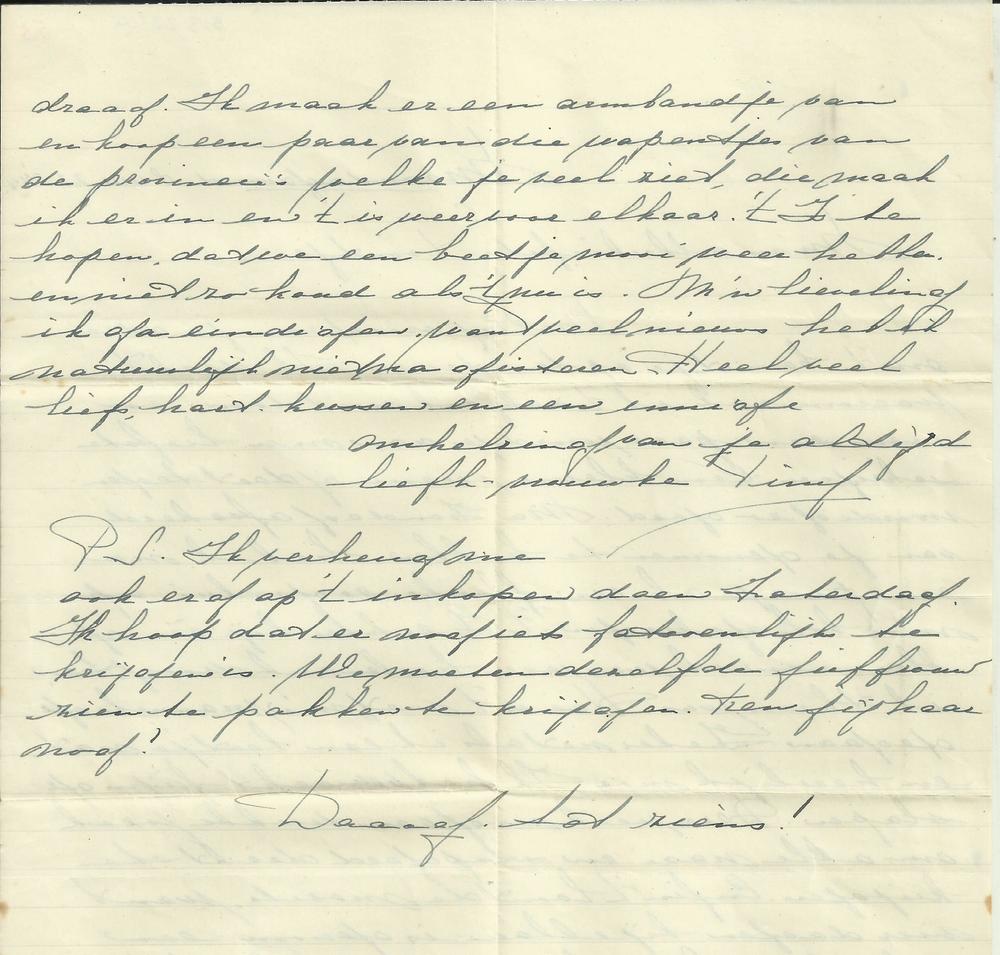 draag. Ik maak er een armbandje van
en koop een paar van die wapentjes van
de provincie's welke je veel ziet, die maak
ik er in en 't is weer voor elkaar. 't Is te
hopen, dat we een beetje mooi weer hebben.
en niet zo koud als 't nu is. M'n lieveling
ik ga eindigen, want veel nieuws heb ik
natuurlijk niet na gisteren. Heel veel
liefs, hart. kussen en een innige
omhelzing van je altijd
liefh- vrouwke
P.S. Ik verheug me
ook erg op 't inkopen doen Zaterdag.
Ik hoop dat er nog iets fatsoenlijk te
krijgen is. We moeten dezelfde juffrouw
zien te pakken te krijgen. Ken jij haar
nog?
Daaag. tot ziens!